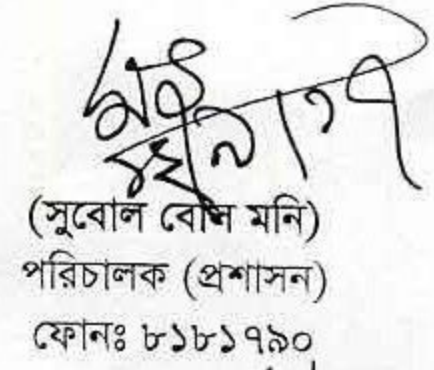 (সুবোল বোস মনি)
পরিচালক (প্রশাসন)
ফোনঃ ৮১৮১৭৯০